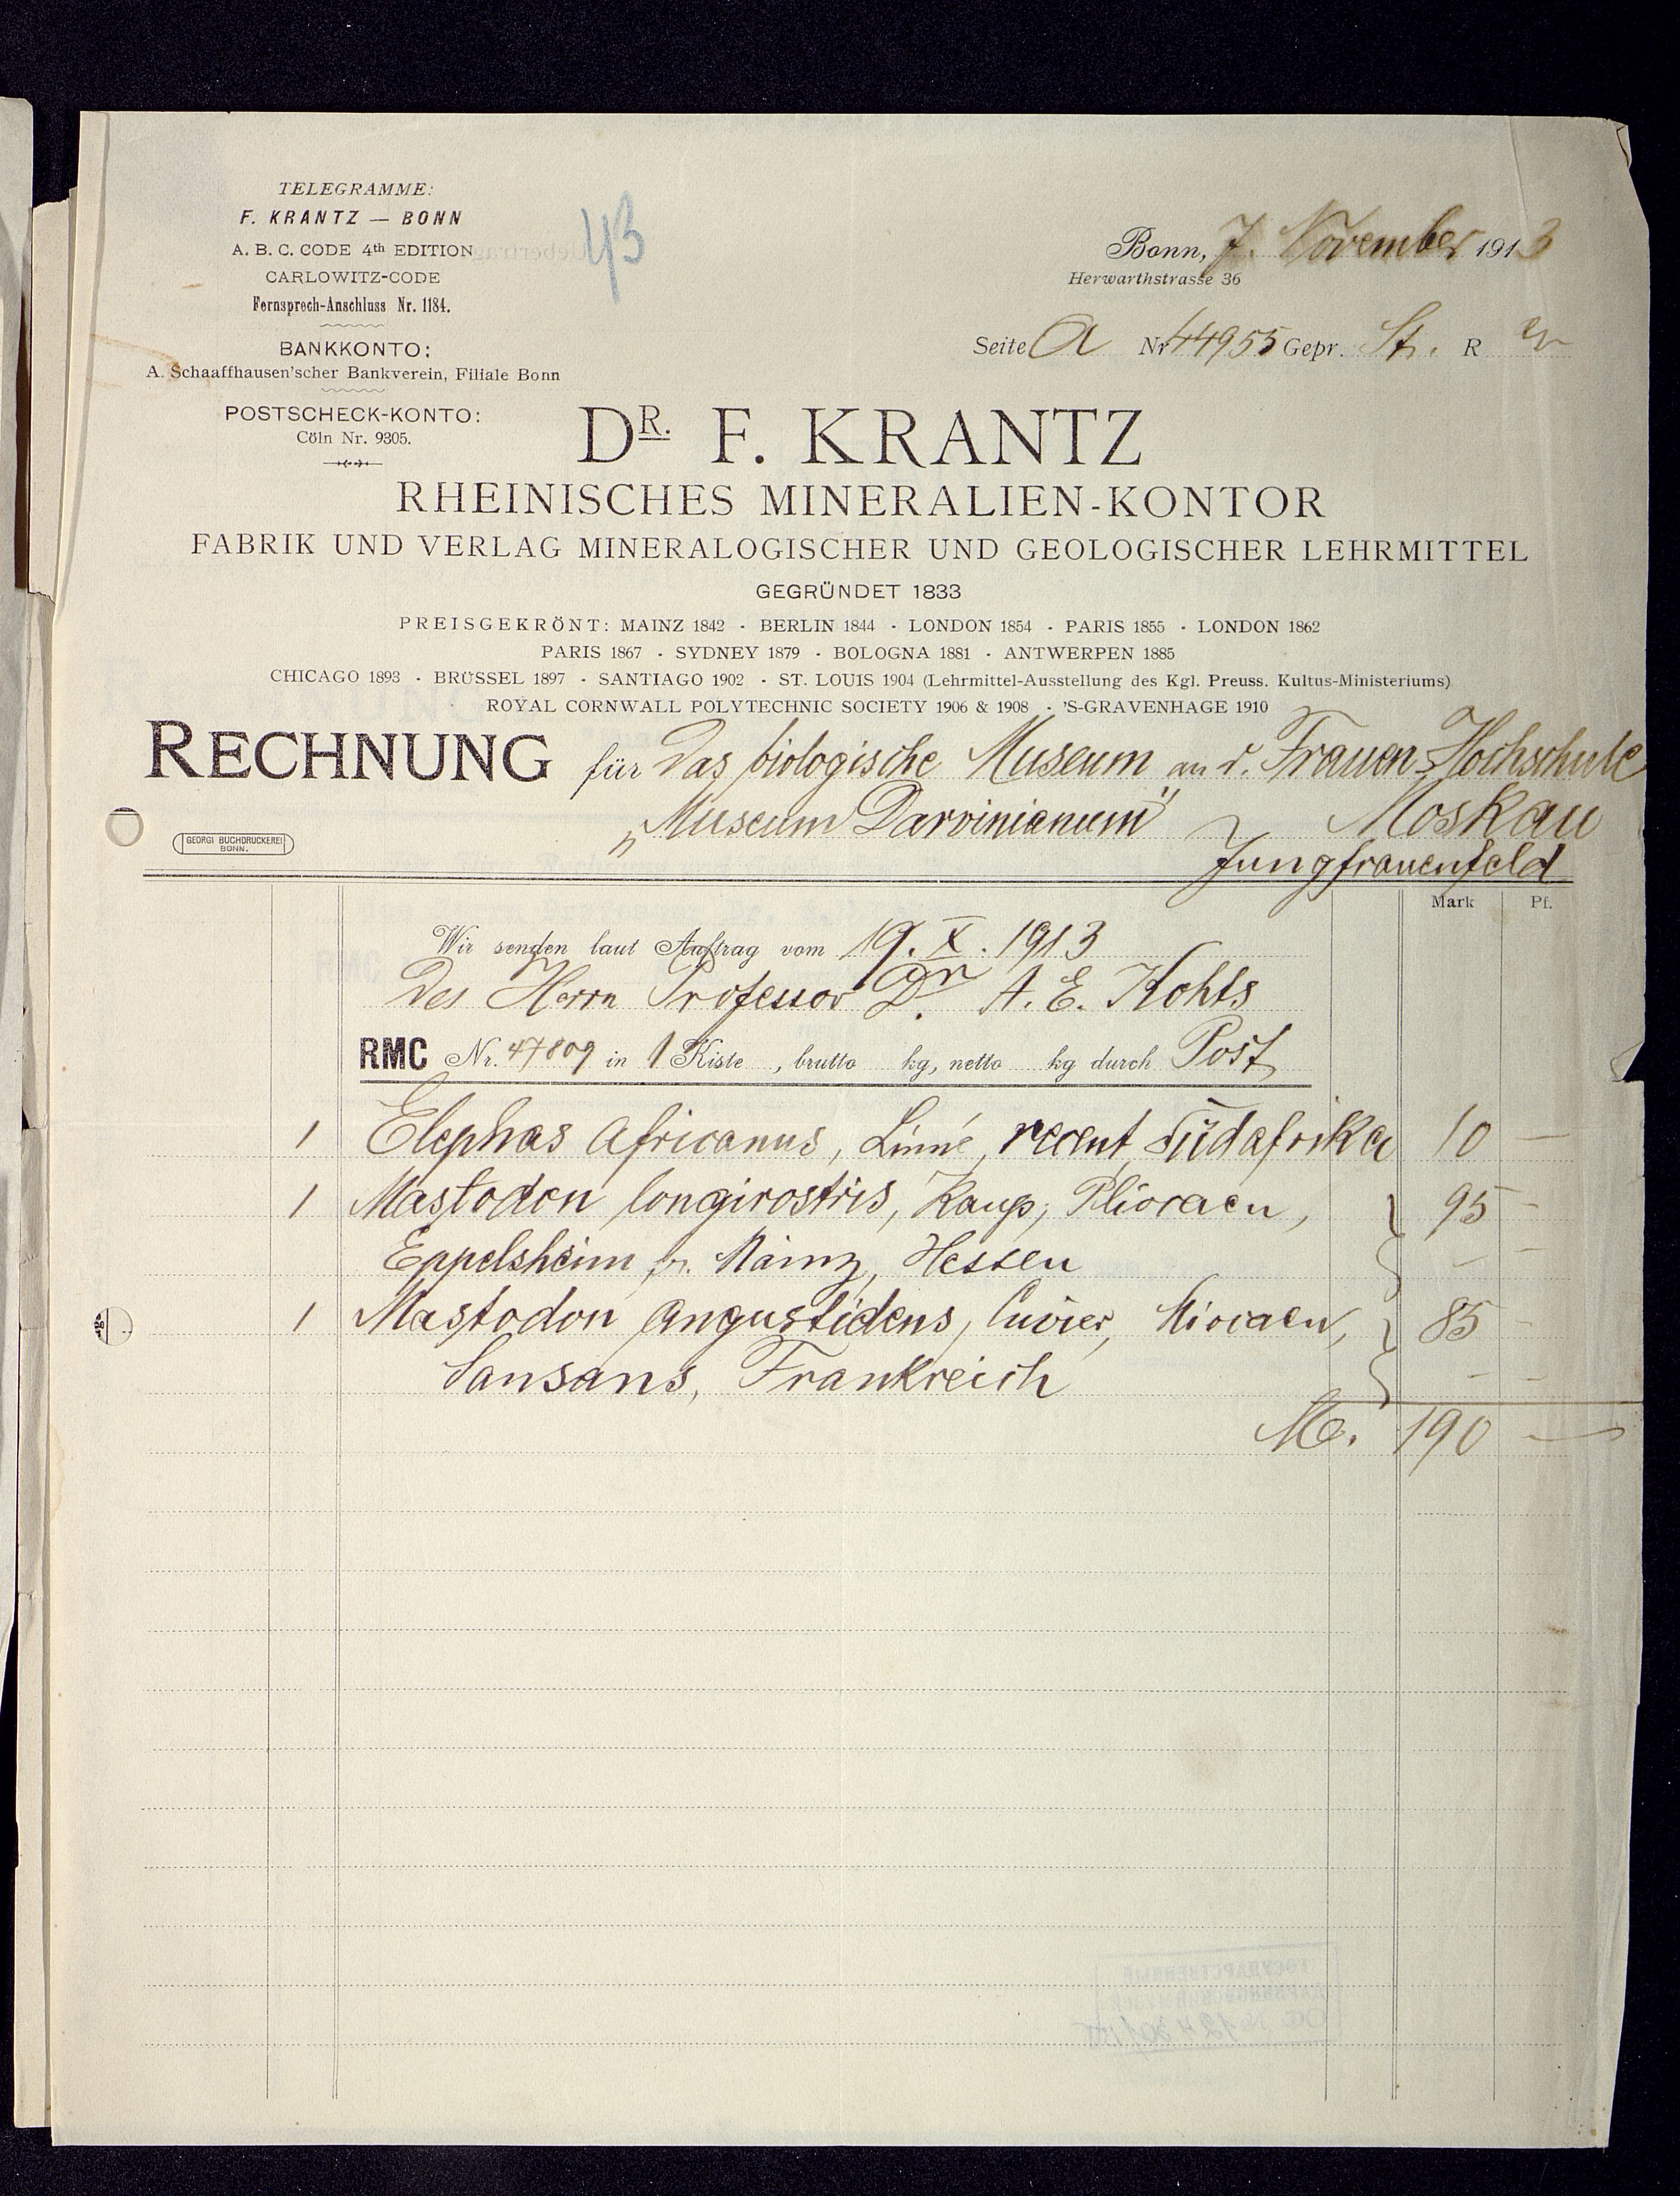 TELEGRAMME:
F. KRANTZ — BONN
A. B. C. CODE 4th EDITION
CARLOWITZ-CODE
Fernsprech-Anschluss Nr. 1184.
BANKKONTO:
A. Schaaffhausen'scher Bankverein, Filiale Bonn
POSTSCHECK-KONTO:
Cöln Nr. 9305.
43
Bonn, 7. November 1913
Herwarthstrasse 36
Seite A Nr 44955 Gepr. St. R
DR. F. KRANTZ
RHEINISCHES MINERALIEN-KONTOR
FABRIK UND VERLAG MINERALOGISCHER UND GEOLOGISCHER LEHRMITTEL
GEGRÜNDET 1833
PREISGEKRÖNT: MAINZ 1842 · BERLIN 1844 · LONDON 1854 · PARIS 1855 · LONDON 1862
PARIS 1867 · SYDNEY 1879 · BOLOGNA 1881 · ANTWERPEN 1885
CHICAGO 1893 · BRÜSSEL 1897 · SANTIAGO 1902 · ST. LOUIS 1904 (Lehrmittel-Ausstellung des Kgl. Preuss. Kultus-Ministeriums)
ROYAL CORNWALL POLYTECHNIC SOCIETY 1906 & 1908 · 'S-GRAVENHAGE 1910
RECHNUNG für Das biologische Museum an d. Frauen-Hochschule
„Museum Darvinianum" Moskau
Jungfrauenfeld
GEORGI BUCHDRUCKEREI
BONN.
Mark Pf.
Wir senden laut Auftrag vom 19. X. 1913
Des Herrn Professor Dr. A. E. Kohts
RMC Nr. 47809 in 1 Kiste , brutto kg, netto kg durch Post
1 Elephas Africanus, Linné, recent, Südafrika 10 —
1 Mastodon longirostris, Kaup, Pliocaen, 95 -
Eppelsheim b. Mainz, Hessen - -
1 Mastodon angustidens, Cuvier, Miocaen, 85 -
Sansans, Frankreich - -
M. 190 —